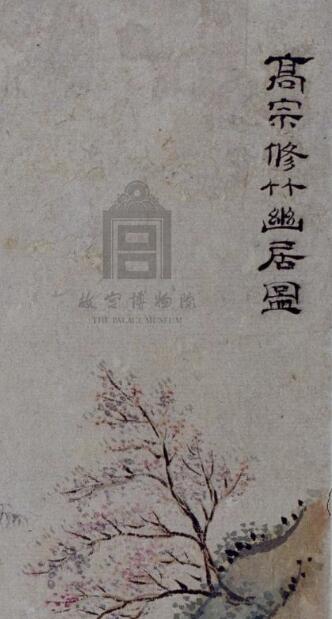 高宗修竹幽居圖
故宫博物院
THE PALACE MUSEUM